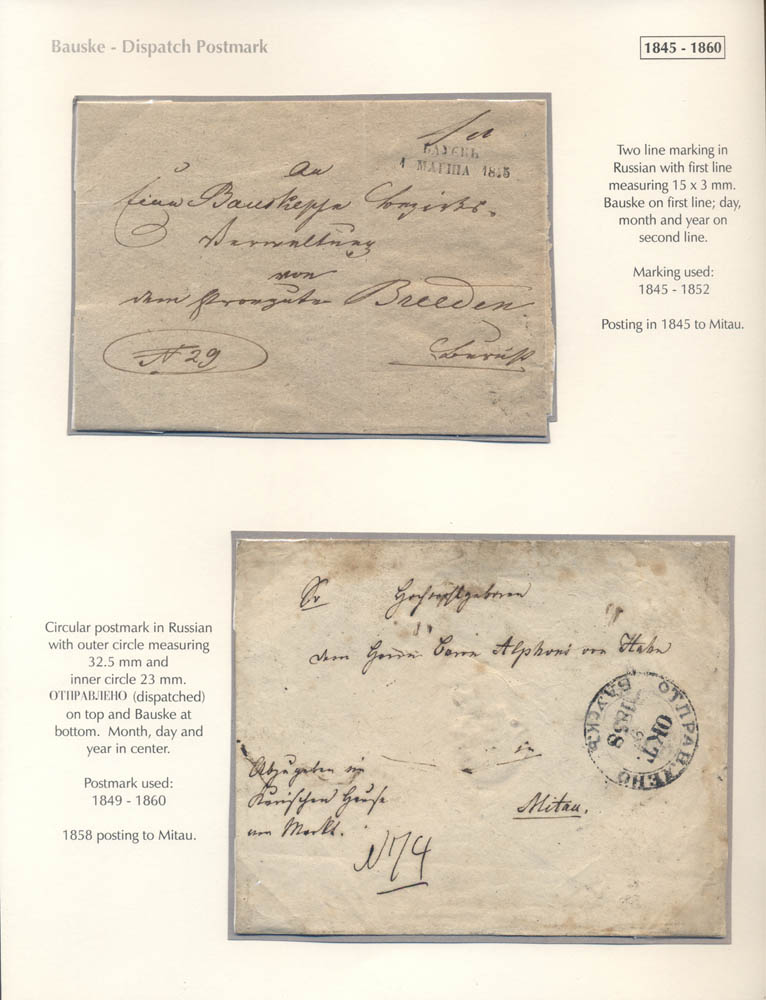 Bauske - Dispatch Postmark
1845 - 1860
БАУСКЪ
1 МАРТА 1845
An
Bauskesche Bezirks-
Verwaltung
von
dem Krongute Breeden.
N 29
Two line marking in
Russian with first line
measuring 15 x 3 mm.
Bauske on first line; day,
month and year on
second line.
Marking used:
1845 - 1852
Posting in 1845 to Mitau.
Circular postmark in Russian
with outer circle measuring
32.5 mm and
inner circle 23 mm.
ОТПРАВЛЕНО (dispatched)
on top and Bauske at
bottom. Month, day and
year in center.
Postmark used:
1849 - 1860
1858 posting to Mitau.
Sr Hochwohlgeboren
dem Herrn Baron Alphons von Hahn
in
Mitau.
Abzugeben im
Kurischen Hause
am Markt.
N 74
ОТПРАВЛЕНО
ОКТ.
1858
БАУСКЪ